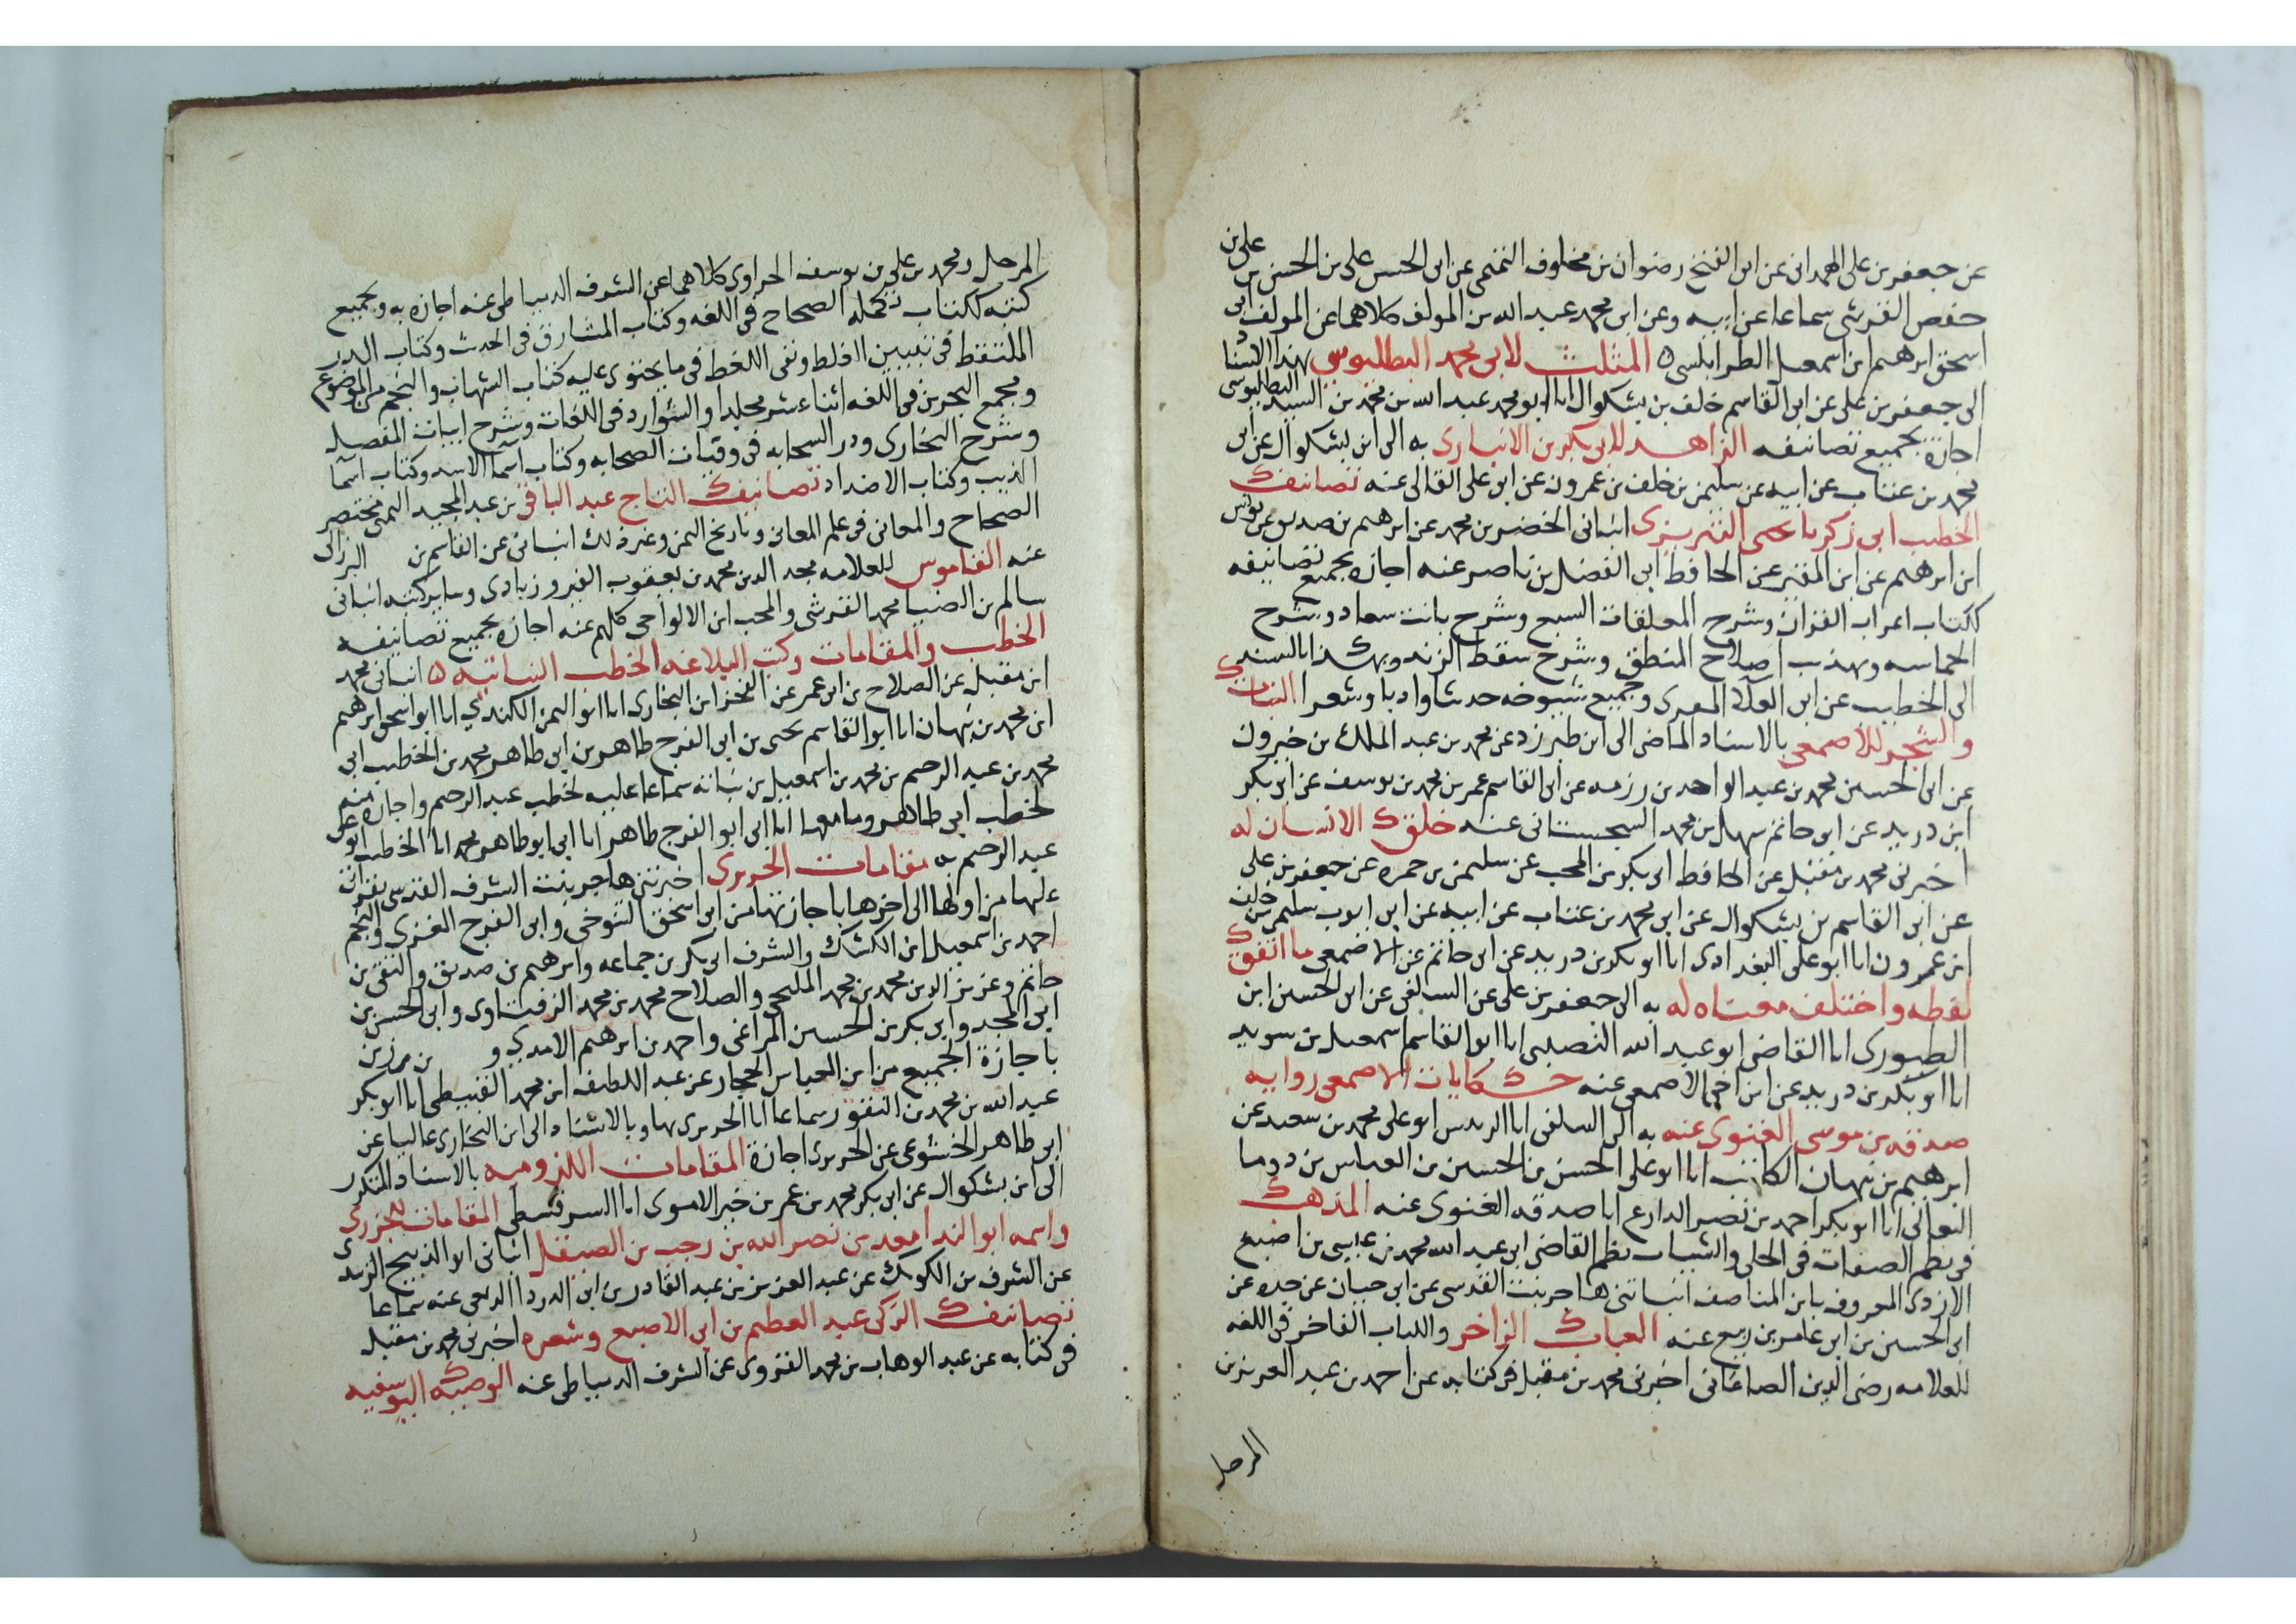 عن جعفر بن على الهمدانى عن ابى الفتح رضوان بن مخلوف التنمى عن ابى الحسن على بن الحسن بن على بن
حفص القرشى سماعا عن ابيه وعن ابى محمد عبد الله بن المولف كلاهما عن المولف ابى
اسحق ابرهيم ابن اسمعيل الطرابلسى ه المثلث لابى محمد البطليوسى بهذا الاسناد
الى جعفر بن على عن ابى القاسم خلف بن بشكوال انا ابو محمد عبد الله بن محمد بن السيد البطليوسى
اجازة بجميع تصانيفه الزاهد لابى بكر بن الانبارى به الى ابن بشكوال عن ابى
محمد بن عتاب عن ابيه عن سليمن بن خلف بن عمرون عن ابى على القالى عنه تصانيف
الخطيب ابى زكريا يحيى التبريزى انبانى الخضر بن محمد عن ابرهيم بن صديق عن يونس
ابن ابرهيم عن ابن المقير عن الحافظ ابى الفضل بن ناصر عنه اجازه بجميع تصانيفه
ككتاب اعراب القران وشرح المعلقات السبع وشرح بانت سعاد وشرح
الحماسه وتهذيب اصلاح المنطق وشرح سقط الزند وبهذا السند
الى الخطيب عن ابى العلا المعرى وجميع شيوخه حديثا وادبا وشعرا النبات
والشجر للاصمعى بالاسناد الماضى الى ابن طبرزد عن محمد بن عبد الملك بن خيرون
عن ابى الحسين محمد بن عبد الواحد بن رزمه عن ابى القاسم عمر بن محمد بن يوسف عن ابى بكر
ابن دريد عن ابى حاتم سهل بن محمد السجستانى عنه خلق الانسان له
اخبرنى محمد بن مقبل عن الحافظ ابى بكر بن المحب عن سليمن بن حمزه عن جعفر بن على
عن ابى القاسم بن بشكوال عن ابى محمد بن عتاب عن ابيه عن ابى ايوب سليمن بن خلف
ابن عمرون انا ابو على البغدادى انا ابو بكر بن دريد عن ابى حاتم عن الاصمعى ما اتفق
لفظه واختلف معناه له به الى جعفر بن على عن السلفى عن ابى الحسين ابن
الطيورى انا القاضى ابو عبد الله النصيبى انا ابو القاسم اسمعيل بن سويد
انا ابو بكر بن دريد عن ابن اخى الاصمعى عنه حكايات الاصمعى روايه
صدقه بن موسى الغنوى عنه به الى السلفى انا الرييس ابو على محمد بن سعيد عن
ابرهيم بن نبهان الكاتب انا ابو على الحسن بن الحسين بن العباس بن دوما
النعالى انا ابو بكر احمد بن نصر الدارع انا صدقه الغنوى عنه المذهب
فى نظم الصفات فى الحلى والشيات نظم القاضى ابى عبد الله محمد بن عيسى بن اصبغ
الازدى المعروف بابن المناصف انباتنى هاجر بنت القدسى عن ابى حيان عن جده عن
ابى الحسين بن ابى عامر بن ربيع عنه العباب الزاخر واللباب الفاخر فى اللغه
للعلامه رضى الدين الصاغانى اخبرنى محمد بن مقبل فى كتابه عن احمد بن عبد العزيز بن
المرحل
المرحل ومحمد بن على بن يوسف الحراوى كلاهما عن الشرف الدمياطى عنه اجازه به وبجميع
كتبه ككتاب تكمله الصحاح فى اللغه وكتاب المشارق فى الحديث وكتاب الدر
الملتقط فى تبيين الغلط ونفى اللغط فى ما يحتوى عليه كتاب الشهاب والنجم من الموضوع
ومجمع البحرين فى اللغه اثنا عشر مجلدا والشوارد فى اللغات وشرح ابيات المفصل
وشرح البخارى ودر السحابه فى وفيات الصحابه وكتاب اسما الاسد وكتاب اسما
الذيب وكتاب الاضداد تصانيف التاج عبد الباقى بن عبد المجيد اليمنى مختصر
الصحاح والمعانى فى علم المعانى وتاريخ اليمن وغير ذلك انبانى عن القاسم بن البرزال
عنه القاموس للعلامه مجد الدين محمد بن يعقوب الفيروزبادى وساير كتبه انبانى
سالم بن الضيا محمد القرشى والمحب ابن الالواحى كلهم عنه اجازه بجميع تصانيفه
الخطب والمقامات وكتب البلاغه الخطب النباتيه ه انبانى محمد
ابن مقبل عن الصلاح بن ابى عمر عن الفخر ابن البخارى انا ابو اليمن الكندى انا ابو اسحق ابرهيم
ابن محمد بن نبهان انا ابو القاسم يحيى بن ابى الفرج طاهر بن ابى طاهر محمد بن الخطيب ابى
محمد بن عبد الرحيم بن محمد بن اسمعيل بن نباته سماعا عليه لخطب عبد الرحيم واجازه منه
لخطب ابى طاهر وما معها انا ابى ابو الفرج طاهر انا ابى ابو طاهر محمد انا الخطيب ابو
عبد الرحيم به مقامات الحريرى اخبرتنى هاجر بنت الشرف القدسى بقراتى
عليها من اولها الى اخرها باجازتها من ابى اسحق التنوخى وابى الفرج الغزى والنجم
احمد بن اسمعيل ابن الكشك والشرف ابى بكر بن جماعه وابرهيم بن صديق والتقى بن
حاتم وعزيز الدين محمد بن محمد المليجى والصلاح محمد بن محمد الزفتاوى وابى الحسن بن
ابى المجد وابى بكر بن الحسين المراغى واحمد بن ابرهيم الامدى و بن مرزبن
باجازة الجميع من ابى العباس الحجار عن عبد اللطيف ابن محمد القبيطى انا ابو بكر
عبد الله بن محمد بن النقور سماعا انا الحريرى بها وبالاسناد الى ابن البخارى عاليا عن
ابى طاهر الخشوعى عن الحريرى اجازة المقامات اللزوميه بالاسناد المتكرر
الى ابن بشكوال عن ابى بكر محمد بن عمر بن خير الاموى انا السرقسطى المقامات للجزرى
واسمه ابو الندا معد بن نصر الله بن رجب بن الصيقل انبانى ابو الذبيح الزيد
عن الشرف بن الكويك عن عبد العزيز بن عبد القادر بن ابى الدر عنه سماعا
تصانيف الزكى عبد العظيم بن ابى الاصبع وشعره اخبرنى محمد بن مقبل
فى كتابه عن عبد الوهاب بن محمد القروى عن الشرف الدمياطى عنه الوصيه اليوسفيه